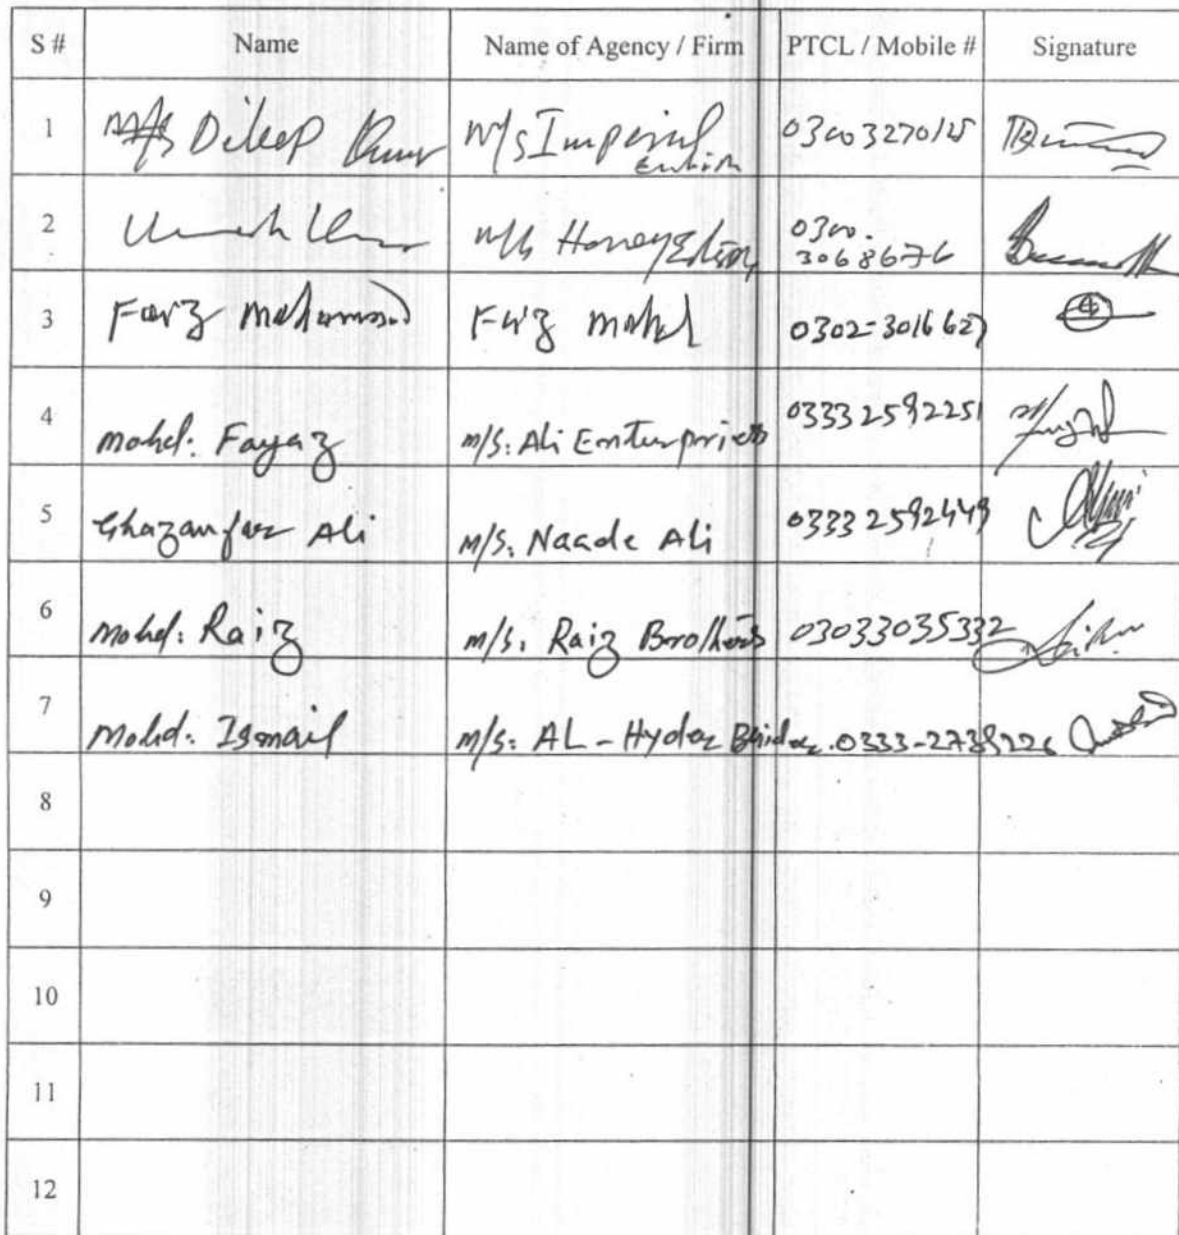 S # Name Name of Agency / Firm PTCL / Mobile # Signature
1 M/s Dileep Kumar M/s Imperial 03003270125
2 M/s Honey 0300.
3068676
3 Faiz Mohammad Faiz Mohd 0302=3016627
4 Mohd: Fayaz M/S: Ali Enterprises 03332592251
5 Ghazanfar Ali M/S: Naade Ali 03332592449
6 Mohd: Raiz M/S: Raiz Brothers 03033035332
7 Mohd: Ismail M/S: AL-Hyder 0333-2739226
8
9
10
11
12